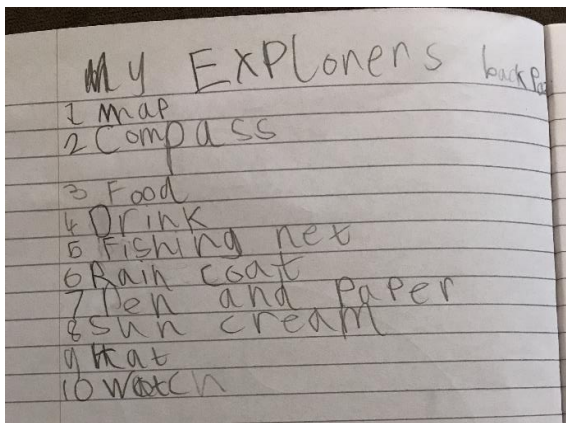 My Explorers backpac
1 map
2 Compass
3 Food
4 Drink
5 Fishing net
6 Rain coat
7 Pen and Paper
8 sun cream
9 Hat
10 Watch